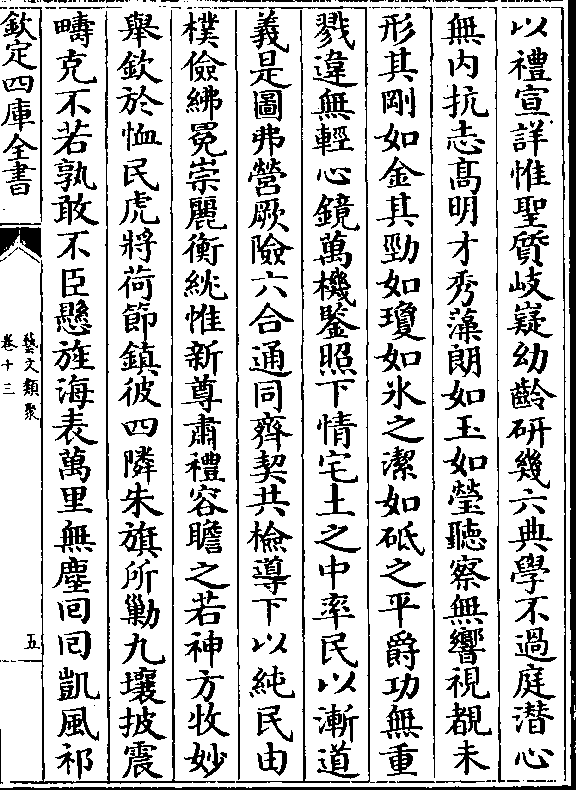 以禮宣詳惟聖質岐嶷幼齡研幾六典學不過庭潛心
無內抗志髙明才秀藻朗如玉如瑩聽察無響視覩未
形其剛如金其勁如瓊如氷之潔如砥之平爵功無重
戮違無輕心鏡萬機鑒照下情宅土之中率民以漸道
義是圖弗營厥險六合通同齊契共檢導下以純民由
樸儉紼冕崇麗衡紞惟新尊肅禮容瞻之若神方收妙
舉欽於恤民虎將荷節鎮彼四隣朱旗所勦九壤披震
疇克不若孰敢不臣懸旌海表萬里無塵囘囘凱風祁
欽定四庫全書
藝文類聚
卷十三
五